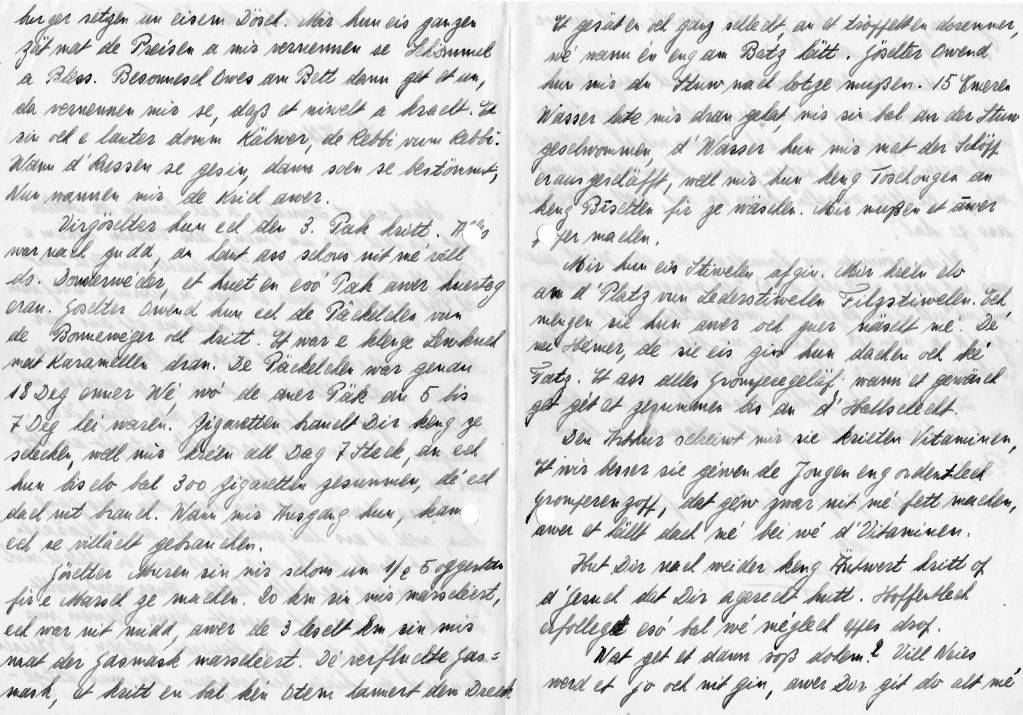 burger setzen un eisem Dësch. Mir hun eis ganzen
Zät mat de Preisen a mir vernennen se Schömmel
a Bless. Besonnesch Owes am Bett dann get et un,
da vernennen mir se, daß et niwelt a kraelt. Et
sin och e lauter domm Kälwer, de Rebbi vum Rebbi.
Wann d'Russen se gesin, dann soen se bestömmt,
Nun wannen mir de Krich awer.
Virgöschter hun ech den 3. Pak kritt.
war nach gudd, an lant ass schons nit mé vill
do. Donderwéder, et huet en esó Pak awer huerteg
eran. Göschter Owend hun ech de Päckelchen vun
de Bonneweger och kritt. Et war e klenge Lewkuch
mat Karamellen dran. De Päckelchen war genau
18 Deg enner Wé, wó de aner Päk an 5 bis
7 Deg hei waren. Zigaretten brauch Dir keng ze
schecken, well mir kréien all Dag 7 Steck, an ech
hun bis elo bal 300 Zigaretten zesummen, dé ech
dach nit brauch. Wann mir Ausgang hun, kann
ech se villäicht gebrauchen.
Göschter Muren sin mir schons um 1/2 5 opgestan
fir e Marsch ze machen. 20 km sin mir marschéiert,
ech war nit midd, awer de 3 lescht km sin mir
mat der Gasmask marschéiert. Dé verfluchte Gas=
mask, et kritt en bal ken Otem hannert dem Dreck
Et gesät en och ganz schlecht, an et tröppelt en dorenner,
wé wann en eng am Batz hätt. Göschter Owend
hun mir du Stuw nach botze mußen. 15 Emeren
Wasser hate mir dran gelat, mir sin bal an der Stuw
geschwommen, d'Wasser hun mir mat der Schöpp
erausgeschäfft, well mir hun keng Toschongen an
keng Bischten fir ze wäschen. Mir mußen et ower
machen.
Mir hun eis Stiwelen, afgin. Mir kréien elo
am d'Platz vun Lederstiwelen Filzstiwelen. Ech
mengen sie hun awer och guer näscht mé. Dé
nei Hiemer, de sie eis gin hun dachen och ké
Fatz. Et ass alles Gromperegeläf: wann et gewäsch
get gét et zesummen bis an d'Hallschecht.
Den Arthur schreiwt mir sie krieten Vitaminen,
Et wir besser sie géwen de Jongen eng ordentlech
Gromperenzopp, dat géw zwar nit mé fett machen,
awer et hällt dach mé bei wé d'Vitaminen.
Hut Dir nach weider keng Äntwert kritt op
d'Gesuch dat Dir agerecht hutt. Hoffentlech
erfollegt esó bal wé méglech eppes drop.
Wat get et dann soß dohem? Vill Neies
werd et jo och nit gin, awer Dir git do alt mé